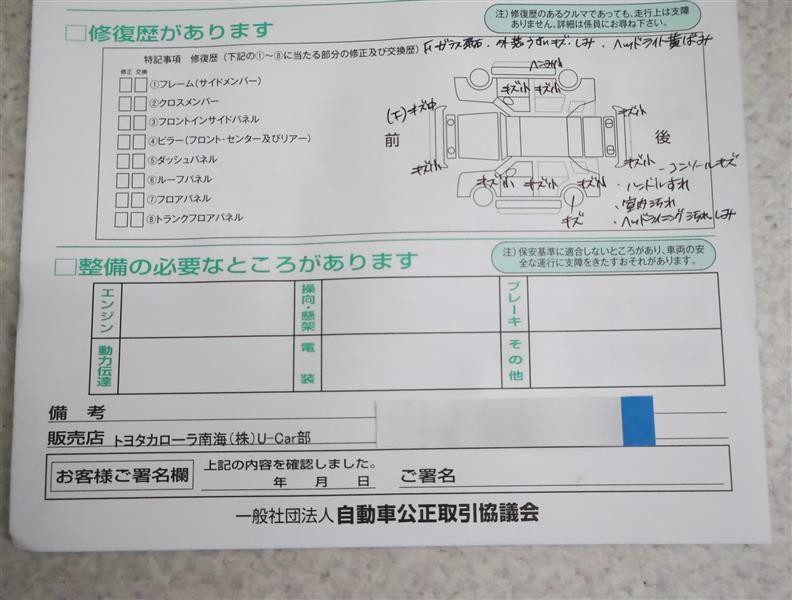 注）修復歴のあるクルマであっても、走行上は支障
ありません。詳細は係員にお尋ね下さい。
□修復歴があります
特記事項 修復歴（下記の①～⑧に当たる部分の修正及び交換歴）
ガラス 外装うすいキズ・しみ・ヘッドライト黄ばみ
修正 交換
①フレーム（サイドメンバー）
②クロスメンバー
③フロントインサイドパネル
④ピラー（フロント・センター及びリアー）
⑤ダッシュパネル
⑥ルーフパネル
⑦フロアパネル
⑧トランクフロアパネル
ヘコミ小
キズ小 キズ小
(下)キズ中
キズ小
前
後
キズ小
キズ小
キズ小 キズ小 キズ小
キズ
・コンソールキズ
・ハンドルすれ
・室内汚れ
・ヘッドライニング汚れ しみ
□整備の必要なところがあります
注）保安基準に適合しないところがあり、車両の安
全な運行に支障をきたすおそれがあります。
エンジン
操向・懸架
ブレーキ
動力伝達
電装
その他
備考
販売店 トヨタカローラ南海（株）U-Car部
お客様ご署名欄
上記の内容を確認しました。
年 月 日
ご署名
一般社団法人 自動車公正取引協議会